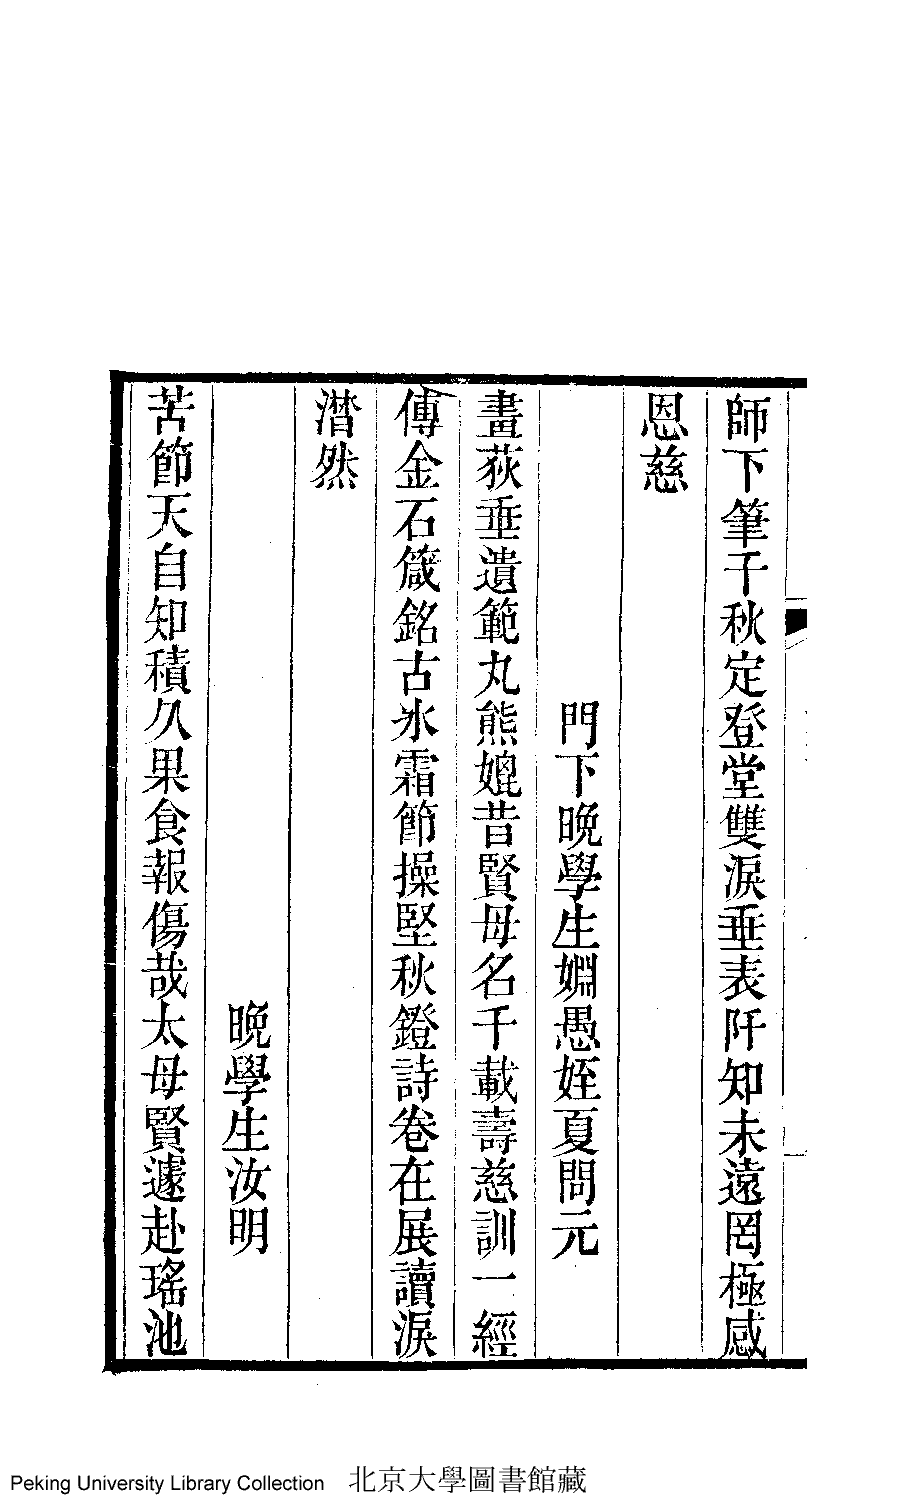 師下筆千秋定登堂雙淚垂表阡知未遠罔極感
恩慈
門下晚學生婣愚姪夏問元
畫荻垂遺範丸熊媲昔賢母名千載壽慈訓一經
傳金石箴銘古氷霜節操堅秋鐙詩卷在展讀淚
潸然
晚學生汝明
苦節天自知積久果食報傷哉太母賢遽赴瑤池
Peking University Library Collection 北京大學圖書館藏